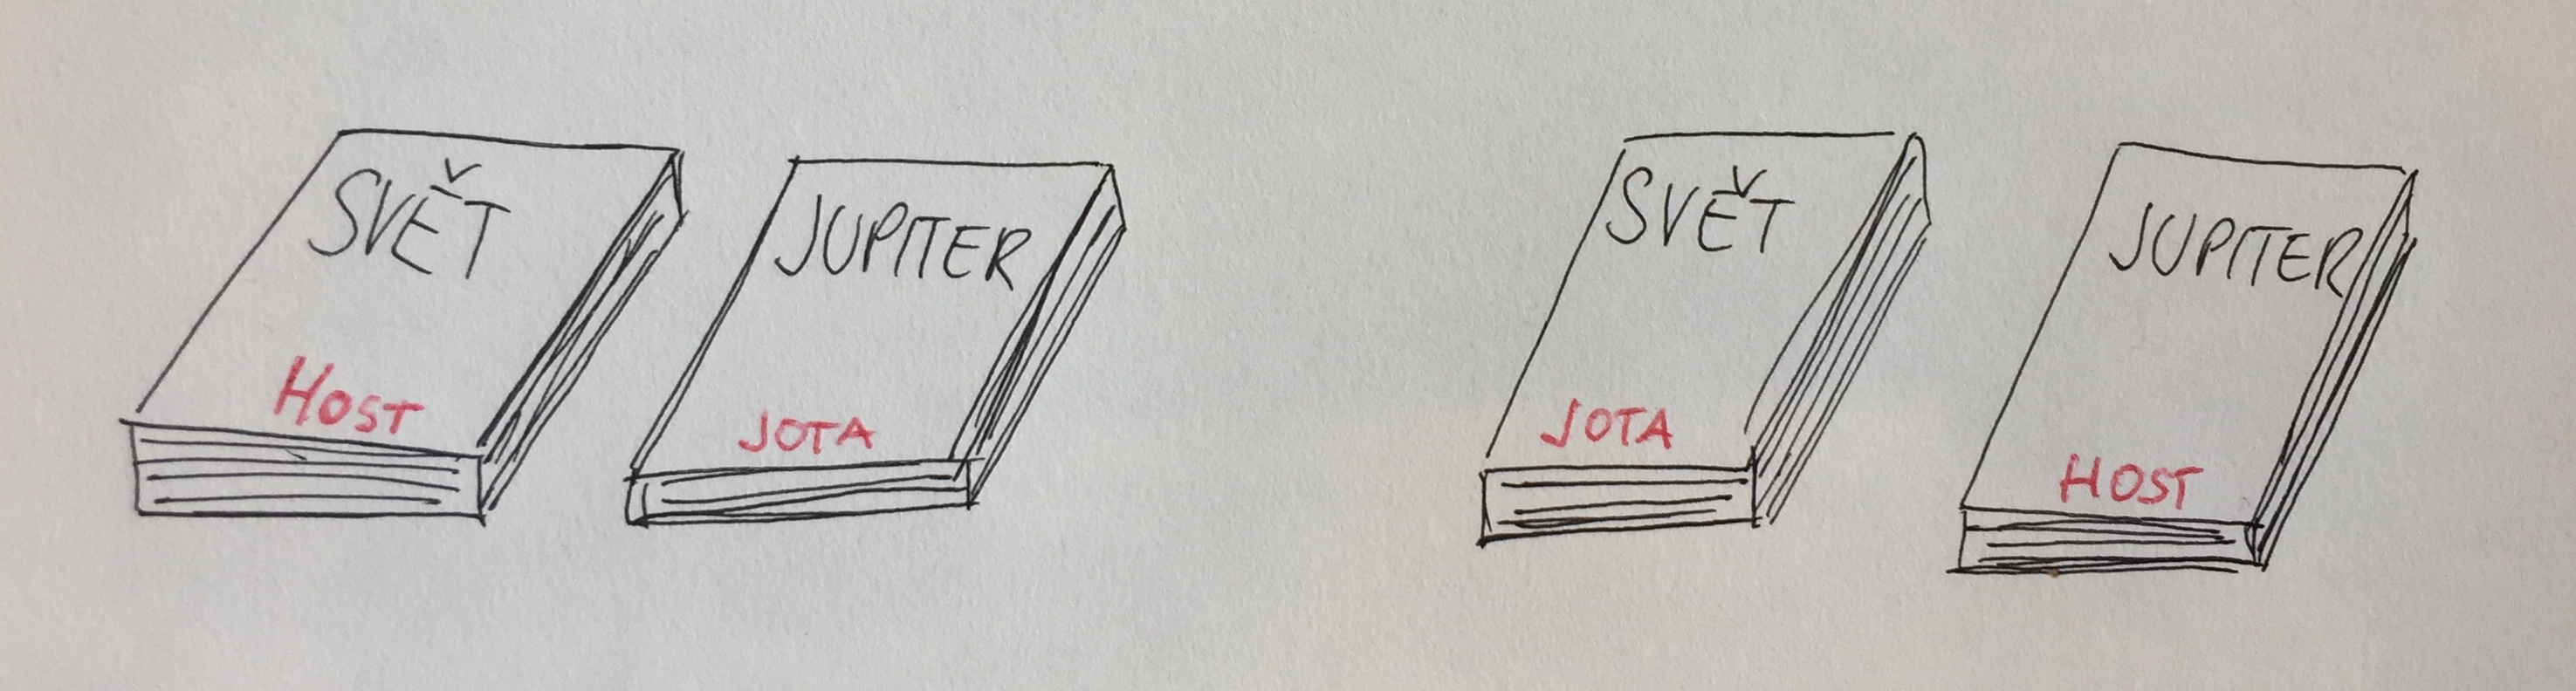 SVĚT
HOST
JUPITER
JOTA
SVĚT
JOTA
JUPITER
HOST